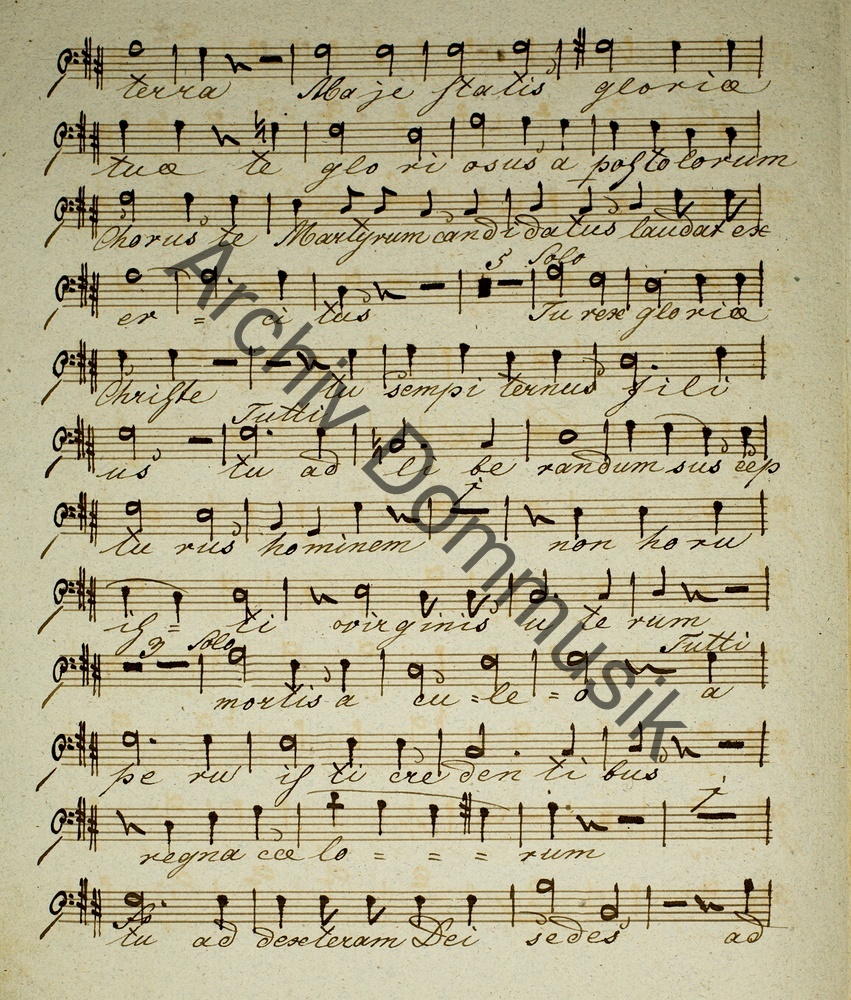 terra Maje statis gloriæ
tuæ te glo ri osus a postolorum
Chorus te Martyrum candidatus laudat ex
5 Solo
er = ci tus Tu rex gloriæ
Christe tu sempi ternus fili
Tutti
us tu ad li be randum sus cep
1
tu rus hominem non horu
is = ti virginis u te rum
3 Solo Tutti
mortis a cu = le = o a
pe ru is ti cre den ti bus
1
regna cœ lo = = = rum
tu ad dexteram Dei sedes ad
Archiv Dommusik